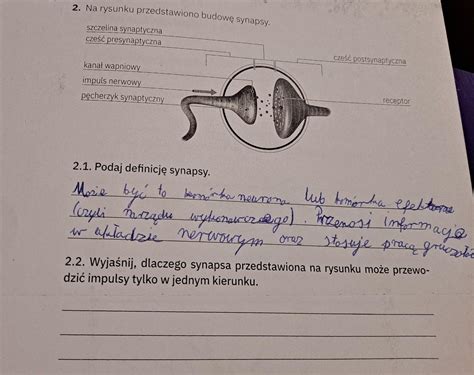 2. Na rysunku przedstawiono budowę synapsy.
szczelina synaptyczna
część presynaptyczna
część postsynaptyczna
kanał wapniowy
impuls nerwowy
pęcherzyk synaptyczny
receptor
2.1. Podaj definicję synapsy.
Może być to komórka neurona lub komórka
(czyli narządu wykonawczego). Przenosi informacje
w układzie nerwowym oraz stosuje pracą
2.2. Wyjaśnij, dlaczego synapsa przedstawiona na rysunku może przewo-
dzić impulsy tylko w jednym kierunku.